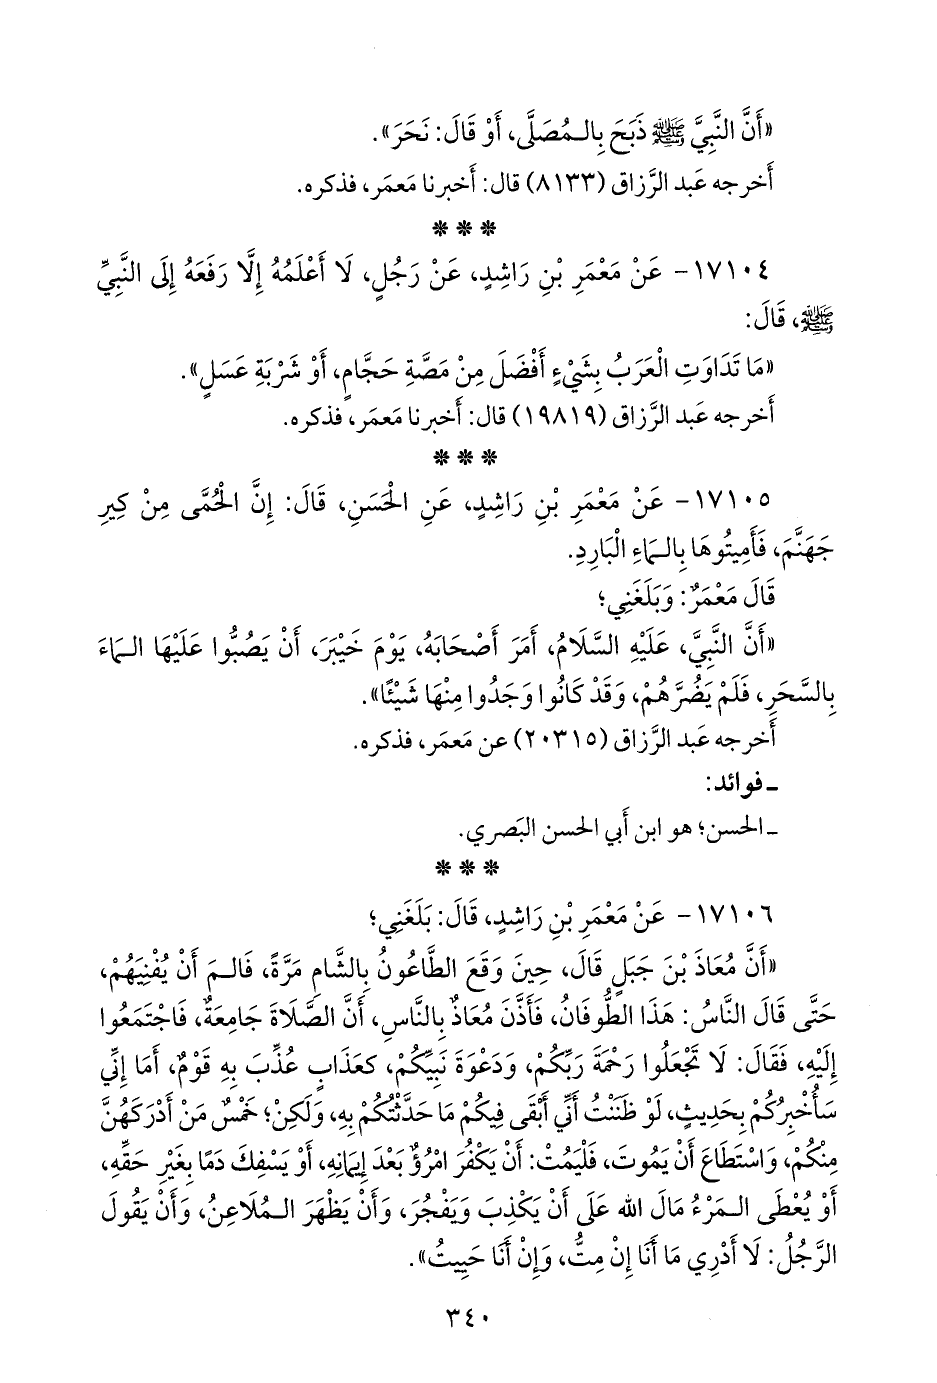 «أَنَّ النَّبِيَّ ﷺ ذَبَحَ بِالْـمُصَلَّى، أَوْ قَالَ: نَحَرَ».
أَخرجه عَبد الرَّزاق (٨١٣٣) قال: أَخبرنا مَعمَر، فذكره.
* * *
١٧١٠٤- عَنْ مَعْمَرِ بْنِ رَاشِدٍ، عَنْ رَجُلٍ، لَا أَعْلَمُهُ إِلَّا رَفَعَهُ إِلَى النَّبِيِّ
ﷺ، قَالَ:
«مَا تَدَاوَتِ الْعَرَبُ بِشَيْءٍ أَفْضَلَ مِنْ مَصَّةِ حَجَّامٍ، أَوْ شَرْبَةِ عَسَلٍ».
أَخرجه عَبد الرَّزاق (١٩٨١٩) قال: أَخبرنا مَعمَر، فذكره.
* * *
١٧١٠٥- عَنْ مَعْمَرِ بْنِ رَاشِدٍ، عَنِ الْحَسَنِ، قَالَ: إِنَّ الْحُمَّى مِنْ كِيرِ
جَهَنَّمَ، فَأَمِيتُوهَا بِالْـمَاءِ الْبَارِدِ.
قَالَ مَعْمَرٌ: وَبَلَغَنِي؛
«أَنَّ النَّبِيَّ، عَلَيْهِ السَّلَامُ، أَمَرَ أَصْحَابَهُ، يَوْمَ خَيْبَرَ، أَنْ يَصُبُّوا عَلَيْهَا الْـمَاءَ
بِالسَّحَرِ، فَلَمْ يَضُرَّهُمْ، وَقَدْ كَانُوا وَجَدُوا مِنْهَا شَيْئًا».
أَخرجه عَبد الرَّزاق (٢٠٣١٥) عن مَعمَر، فذكره.
ـ فوائد:
ـ الحسن؛ هو ابن أَبي الحسن البَصري.
* * *
١٧١٠٦- عَنْ مَعْمَرِ بْنِ رَاشِدٍ، قَالَ: بَلَغَنِي؛
«أَنَّ مُعَاذَ بْنَ جَبَلٍ قَالَ، حِينَ وَقَعَ الطَّاعُونُ بِالشَّامِ مَرَّةً، فَالـمَ أَنْ يُفْنِيَهُمْ،
حَتَّى قَالَ النَّاسُ: هَذَا الطُّوفَانُ، فَأَذَّنَ مُعَاذٌ بِالنَّاسِ، أَنَّ الصَّلَاةَ جَامِعَةٌ، فَاجْتَمَعُوا
إِلَيْهِ، فَقَالَ: لَا تَجْعَلُوا رَحْمَةَ رَبِّكُمْ، وَدَعْوَةَ نَبِيِّكُمْ، كَعَذَابٍ عُذِّبَ بِهِ قَوْمٌ، أَمَا إِنِّي
سَأُخْبِرُكُمْ بِحَدِيثٍ، لَوْ ظَنَنْتُ أَنِّي أَبْقَى فِيكُمْ مَا حَدَّثْتُكُمْ بِهِ، وَلَكِنْ؛ خَمْسٌ مَنْ أَدْرَكَهُنَّ
مِنْكُمْ، وَاسْتَطَاعَ أَنْ يَمُوتَ، فَلْيَمُتْ: أَنْ يَكْفُرَ امْرُؤٌ بَعْدَ إِيمَانِهِ، أَوْ يَسْفِكَ دَمًا بِغَيْرِ حَقِّهِ،
أَوْ يُعْطَى الْـمَرْءُ مَالَ الله عَلَى أَنْ يَكْذِبَ وَيَفْجُرَ، وَأَنْ يَظْهَرَ الْـمُلَاعِنُ، وَأَنْ يَقُولَ
الرَّجُلُ: لَا أَدْرِي مَا أَنَا إِنْ مِتُّ، وَإِنْ أَنَا حَيِيتُ».
٣٤٠